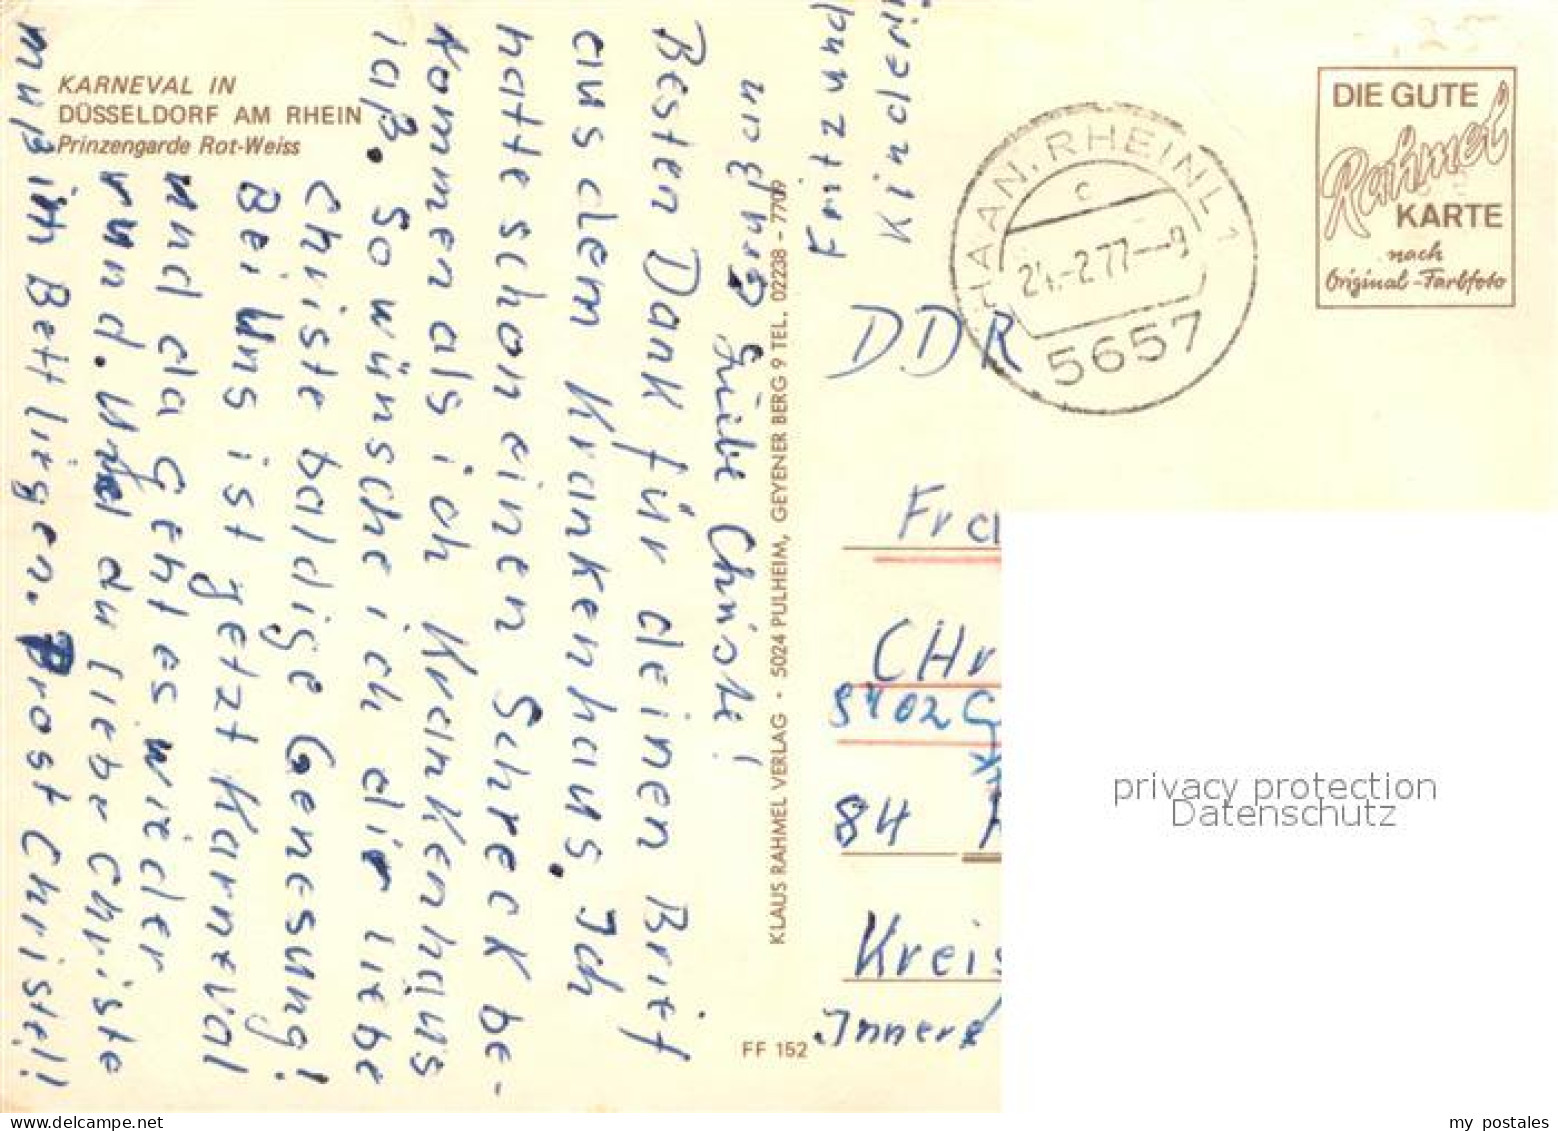 KARNEVAL IN
DÜSSELDORF AM RHEIN
Prinzengarde Rot-Weiss
Liebe Christe!
Besten Dank für deinen Brief
aus dem Krankenhaus. Ich
hatte schon einen Schreck be-
kommen als ich Krankenhaus
laß. So wünsche ich dir liebe
Christe baldige Genesung!
Bei uns ist jetzt Karneval
und da geht es wieder
rund. Und du liebe Christe
muß im Bett liegen. Prost Christel!
und
Fritz und
Kinder
KLAUS RAHMEL VERLAG · 5024 PULHEIM, GEYENER BERG 9 TEL. 02238 - 7709
FF 152
HAAN, RHEINL 1
c
24.-2.77--9
5657
DIE GUTE
Rahmel
KARTE
nach
Original-Farbfoto
DDR
CHr
5402 G
84
Kreis
Innere
privacy protection
Datenschutz
my postales